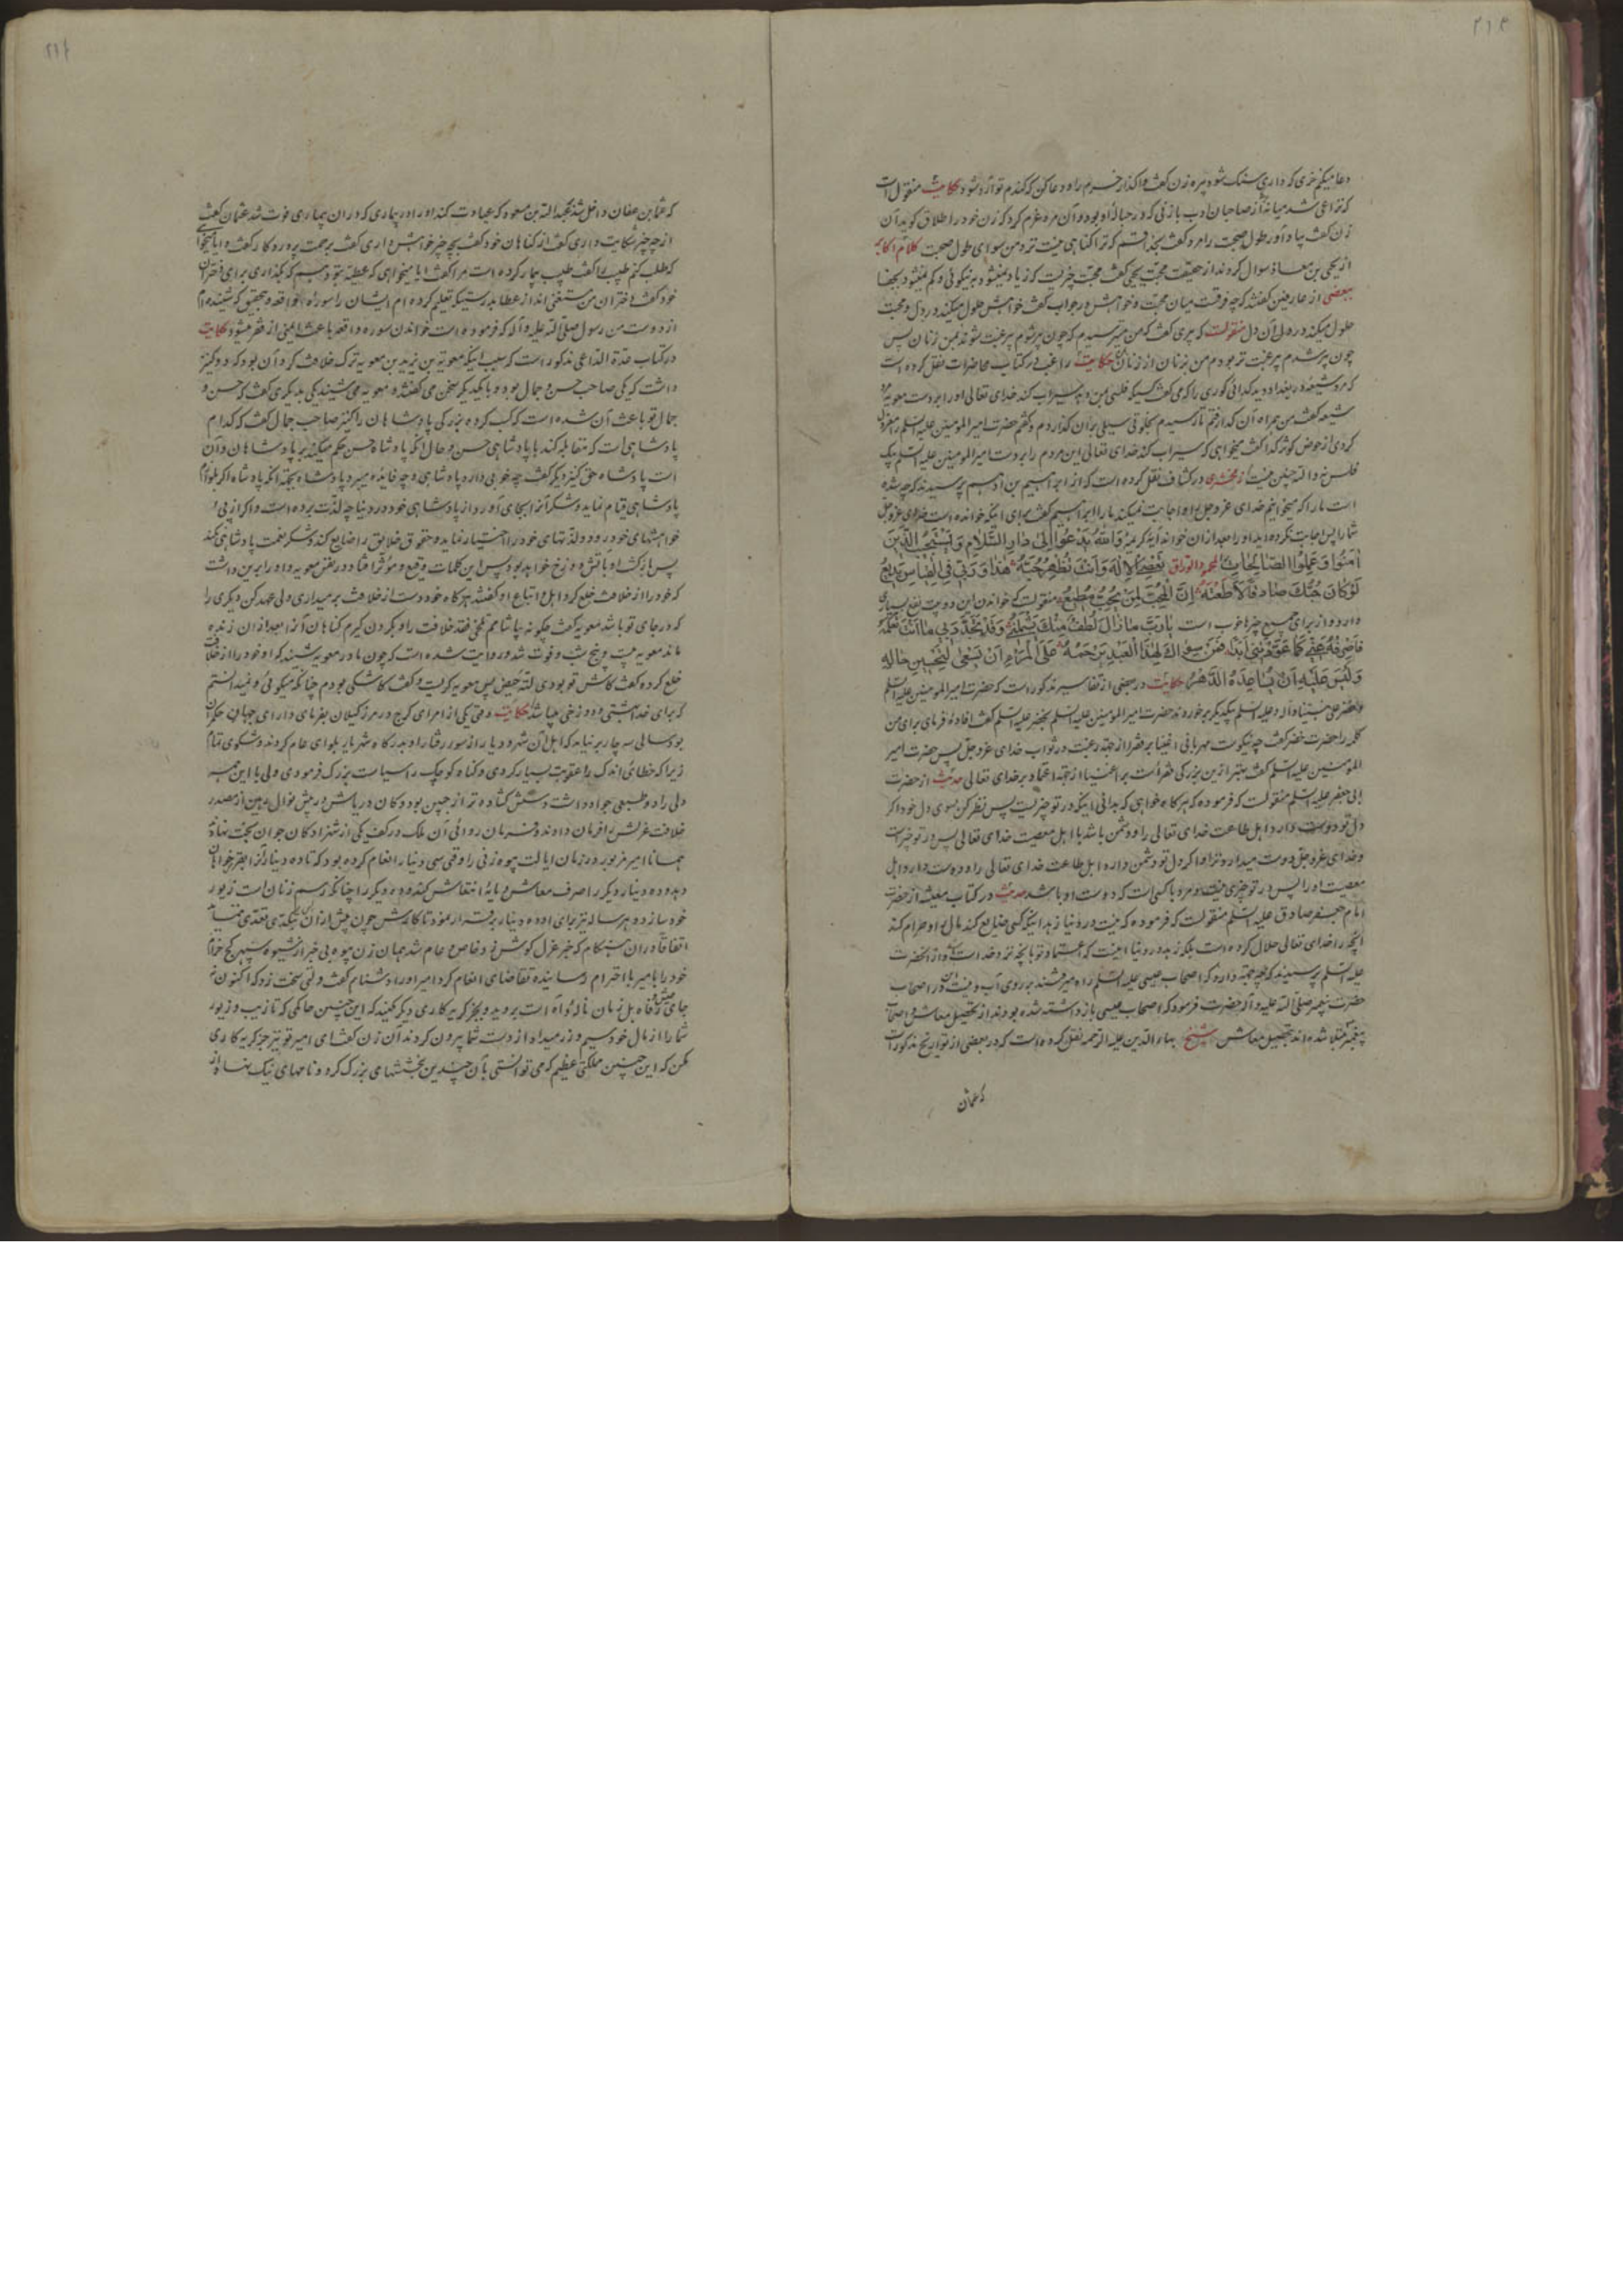 دعا میکنم خری که داری سنک شود پیره زن کفت واکذار خرم را و دعا کن که کندم تو آرد شود حکایت منقول است
که نزاعی شد میانهٔ از صاحبان ادب با زنی که در حبالهٔ او بود و آن مرد عزم کرد که زن خود را طلاق کوید آن
زن کفت بیاد آور طول صحبت را مرد کفت بخدا قسم که ترا کناهی نیست نزد من سوای طول صحبت کلام اکابر
از یحیی بن معاذ سوال کردند از حقیقت محبت یحیی کفت محبت چیزیست که زیاد نمیشود به نیکوئی و کم نمیشود بجفا
بعضی از عارفین کفتند که چه فرقست میان محبت و خواهش در جواب کفت خواهش حلول میکند در دل و محبت
حلول میکند در دل آن دل منقولست که پیری کفت که من میترسیدم که چون پیر شوم بیرغبت شوند بمن زنان پس
چون پیر شدم بیرغبت تر بودم من بزنان از زنان حکایت راغب در کتاب محاضرات نقل کرده است
که مرد شیعه در بغداد دید کدائی کوری را که می کفت کسیکه فلسی بمن دهد سیراب کند خدای تعالی او را بر دست معویه مرد
شیعه کفت من همراه آن کدا رفتم تا رسیدم بخلوتی سیلی بر آن کدا زدم و کفتم حضرت امیر المومنین علیه السلم را معزول
کردی از حوض کوثر کدا کفت میخواهی که سیراب کند خدای تعالی این مردم را بر دست امیر المومنین علیه السلم بیک
فلس نه والله چنین نیست زمخشری در کشاف نقل کرده است که از ابراهیم بن ادهم پرسیدند که چه شده
است ما را که میخوانیم خدای عز و جل را و اجابت نمیکند ما را ابراهیم کفت برای اینکه خوانده است خدای عز و جل
شما را پس اجابت نکرده اید او را بعد از ان خواند آیهٔ کریمه وَاللهُ يَدْعُوا اِلى دارِ السَّلامِ وَيَسْتَجيبُ الَّذينَ
اٰمَنُوا وَعَمِلُوا الصّالِحاتِ لمحمود الوراق تَعْصِي الْاِلهَ وَاَنْتَ تُظْهِرُ حُبَّهُ هذا وَرَبّي فِي الْقِياسِ بَديعُ
لَوْ كانَ حُبُّكَ صادِقًا لَاَطَعْتَهُ اِنَّ الْمُحِبَّ لِمَنْ يُحِبُّ مُطيعُ منقولست که خواندن این دو بیت نفع بسیاری
دارد و از برای جمیع چیزها خوب است يارَبِّ ما زالَ لُطْفٌ مِنْكَ يَشْمَلُني وَقَدْ تَجَدَّدَ بي ما اَنْتَ تَعْلَمُهُ
فَاصْرِفْهُ عَنّي كَما عَوَّدْتَني اَبَدًا فَمَنْ سِواكَ لِهذَا الْعَبْدِ يَرْحَمُهُ عَلَى الْمَرْءِ اَنْ يَسْعى لِتَحْسينِ حالِهِ
وَلَيْسَ عَلَيْهِ اَنْ يُساعِدَهُ الدَّهْرُ حکایت در بعضی از تفاسیر مذکور است که حضرت امیر المومنین علیه السلم
و خضر علی نبینا و آله و علیه السلم بیکدیکر برخوردند حضرت امیر المومنین علیه السلم بخضر علیه السلم کفت افاده فرمای برای من
کلمه را حضرت خضر کفت چه نیکوست مهربانی اغنیا بر فقرا از جهت رغبت در ثواب خدای عز و جل پس حضرت امیر
المومنین علیه السلم کفت بهتر از این بزرکی فقراست بر اغنیا از جهت اعتماد بر خدای تعالی حدیث از حضرت
ابی جعفر علیه السلم منقولست که فرموده که هر کاه خواهی که بدانی اینکه در تو چیزیست پس نظر کن بسوی دل خود اکر
دل تو دوست دارد اهل طاعت خدای تعالی را و دشمن باشد با اهل معصیت خدای تعالی پس در تو خیر است
و خدای عز و جل دوست میدارد ترا و اکر دل تو دشمن دارد اهل طاعت خدای تعالی را و دوست دارد اهل
معصیت او را پس در تو چیزی نیست و مرد با کسی است که دوست او باشد حدیث در کتاب معیشت از حضرت
امام جعفر صادق علیه السلم منقولست که فرموده که نیست در دنیا زهد اینکه کسی ضایع کند مال را و حرام کند
آنچه را خدای تعالی حلال کرده است بلکه زهد در دنیا اینست که اعتماد تو بانچه نزد خداست و از آنحضرت
علیه السلم پرسیدند که چه جهة دارد که اصحاب عیسی علیه السلم راه میرفتند بر روی آب و نیست این در اصحاب
حضرت پیغمبر صلی الله علیه و آله حضرت فرمود که اصحاب عیسی باز داشته شده بودند از تحصیل معاش و اصحاب
پیغمبر مبتلا شده اند بتحصیل معاش شیخ بهاء الدین علیه الرحمه نقل کرده است که در بعضی از تواریخ مذکور است
که عثمان
که عثمان بن عفان داخل شد بعبدالله بن مسعود که عیادت کند او را در بیماری که در ان بیماری فوت شد عثمان کفت
از چه چیز شکایت داری کفت از کناهان خود کفت بچه چیز خواهش داری کفت برحمت پروردکار کفت آیا میخواهی
که طلب کنم طبیب را کفت طبیب بیمار کرده است مرا کفت آیا میخواهی که عطیهٔ بتو دهم که بکذاری برای دختران
خود کفت دختران من مستغنی اند از عطا بدرستیکه تعلیم کرده ام ایشان را سوره واقعه و بتحقیق که شنیده ام
از دوست من رسول صلی الله علیه و آله که فرموده است خواندن سوره واقعه باعث ایمنی از فقر میشود حکایت
در کتاب عدة الداعی مذکور است که سبب اینکه معویة بن یزید بن معویه ترک خلافت کرد آن بود که دو کنیز
داشت که یکی صاحب حسن و جمال بود و با یکدیکر سخن می کفتند و معویه می شنید یکی بدیکری کفت که حسن و
جمال تو باعث آن شده است که کسب کرده بزرکی پادشاهان را کنیز صاحب جمال کفت که کدام
پادشاهی است که مقابله کند با پادشاهی حسن و حال آنکه پادشاه حسن حکم میکند بر پادشاهان و آن
است پادشاه حق کنیز دیکر کفت چه خوبی دارد پادشاهی و چه فایده میبرد پادشاه بجهة آنکه پادشاه اکر بلوازم
پادشاهی قیام نماید و شکر آنرا بجای آورد از پادشاهی خود در دنیا چه لذت برده است و اکر از پی
خواهشهای خود رود و لذتهای خود را اختیار نماید و حقوق خلایق را ضایع کند و شکر نعمت پادشاهی نکند
پس بازکشت او باتش دوزخ خواهد بود پس این کلمات وقیع و مؤثر افتاد در نفس معویه و او را بر ین داشت
که خود را از خلافت خلع کرد اهل و اتباع او کفتند هر کاه خود دست از خلافت بر میداری ولی عهد کن دیکری را
که در جای تو باشد معویه کفت چکونه بیاشامم تلخی فقد خلافت را و بکردن کیرم کناهان آنرا بعد از ان زنده
ماند معویه بیست و پنج شب و فوت شد و روایت شده است که چون مادر معویه شنید که او خود را از خلافت
خلع کرده کفت کاش تو بودی لتهٔ حیض پس معویه کریست و کفت کاشکی بودم چنانکه میکوئی و نمیدانستم
که برای خدا بهشتی و دوزخی میباشد حکایت وقتی یکی از امرای کرج در مرز کیلان بفرمای دارای جهان حکمران
بود سالی سه چار بر نیامد که اهل آن شهر و دیار از سوء رفتار او بدرکاه شهریار بلوای عام کردند و شکوی تمام
زیرا که خطائی اندک را عقوبت بسیار کردی و کناه کوچک را سیاست بزرک فرمودی ولی با این همه
دلی راد و طبعی جواد داشت و کفش کشاده تر از جبین بود و کان در پاش در پیش نوال مهین از مصدر
خلافت عزلش را فرمان دادند و فرمان روائی آن ملک در کف یکی از شهزادکان جوان بخت نهادند
همانا امیر مزبور در زمان ایالت بیوه زنی را وقتی سی دینار انعام کرده بود که تا ده دینار آنرا بقرض خواهان
دهد و ده دینار دیکر را صرف معاش و مایهٔ انتعاش کند و ده دیکر را چنانکه رسم زنان است زیور
خود سازد و هر ساله نیز برای او ده دینار برقرار نمود تا کارش چون پیش از آن بتنکدستی نیفتد
اتفاقا در ان هنکام که خبر عزل کوش زد خاص و عام شد همان زن بیوه بی خبر از شیوه سپهر کج خرام
خود را بامیر با احترام رسانیده تقاضای انعام کرد امیر او را دشنام کفت و لتی سخت زد که اکنون نه
جای عیش و رفاه بل زمان ناله و آه است بروید و بجز کریه کاری دیکر مکنید که این چنین حاکمی که تا زیب و زیور
شما را از مال خود سیم و زر میداد از دست شما بیرون کردند آن زن کفت ای امیر تو نیز جز کریه کاری
مکن که این چنین ملکتی عظیم که می توانستی بآن چندین بخششهای بزرک کرد و نامهای نیک نهاد از